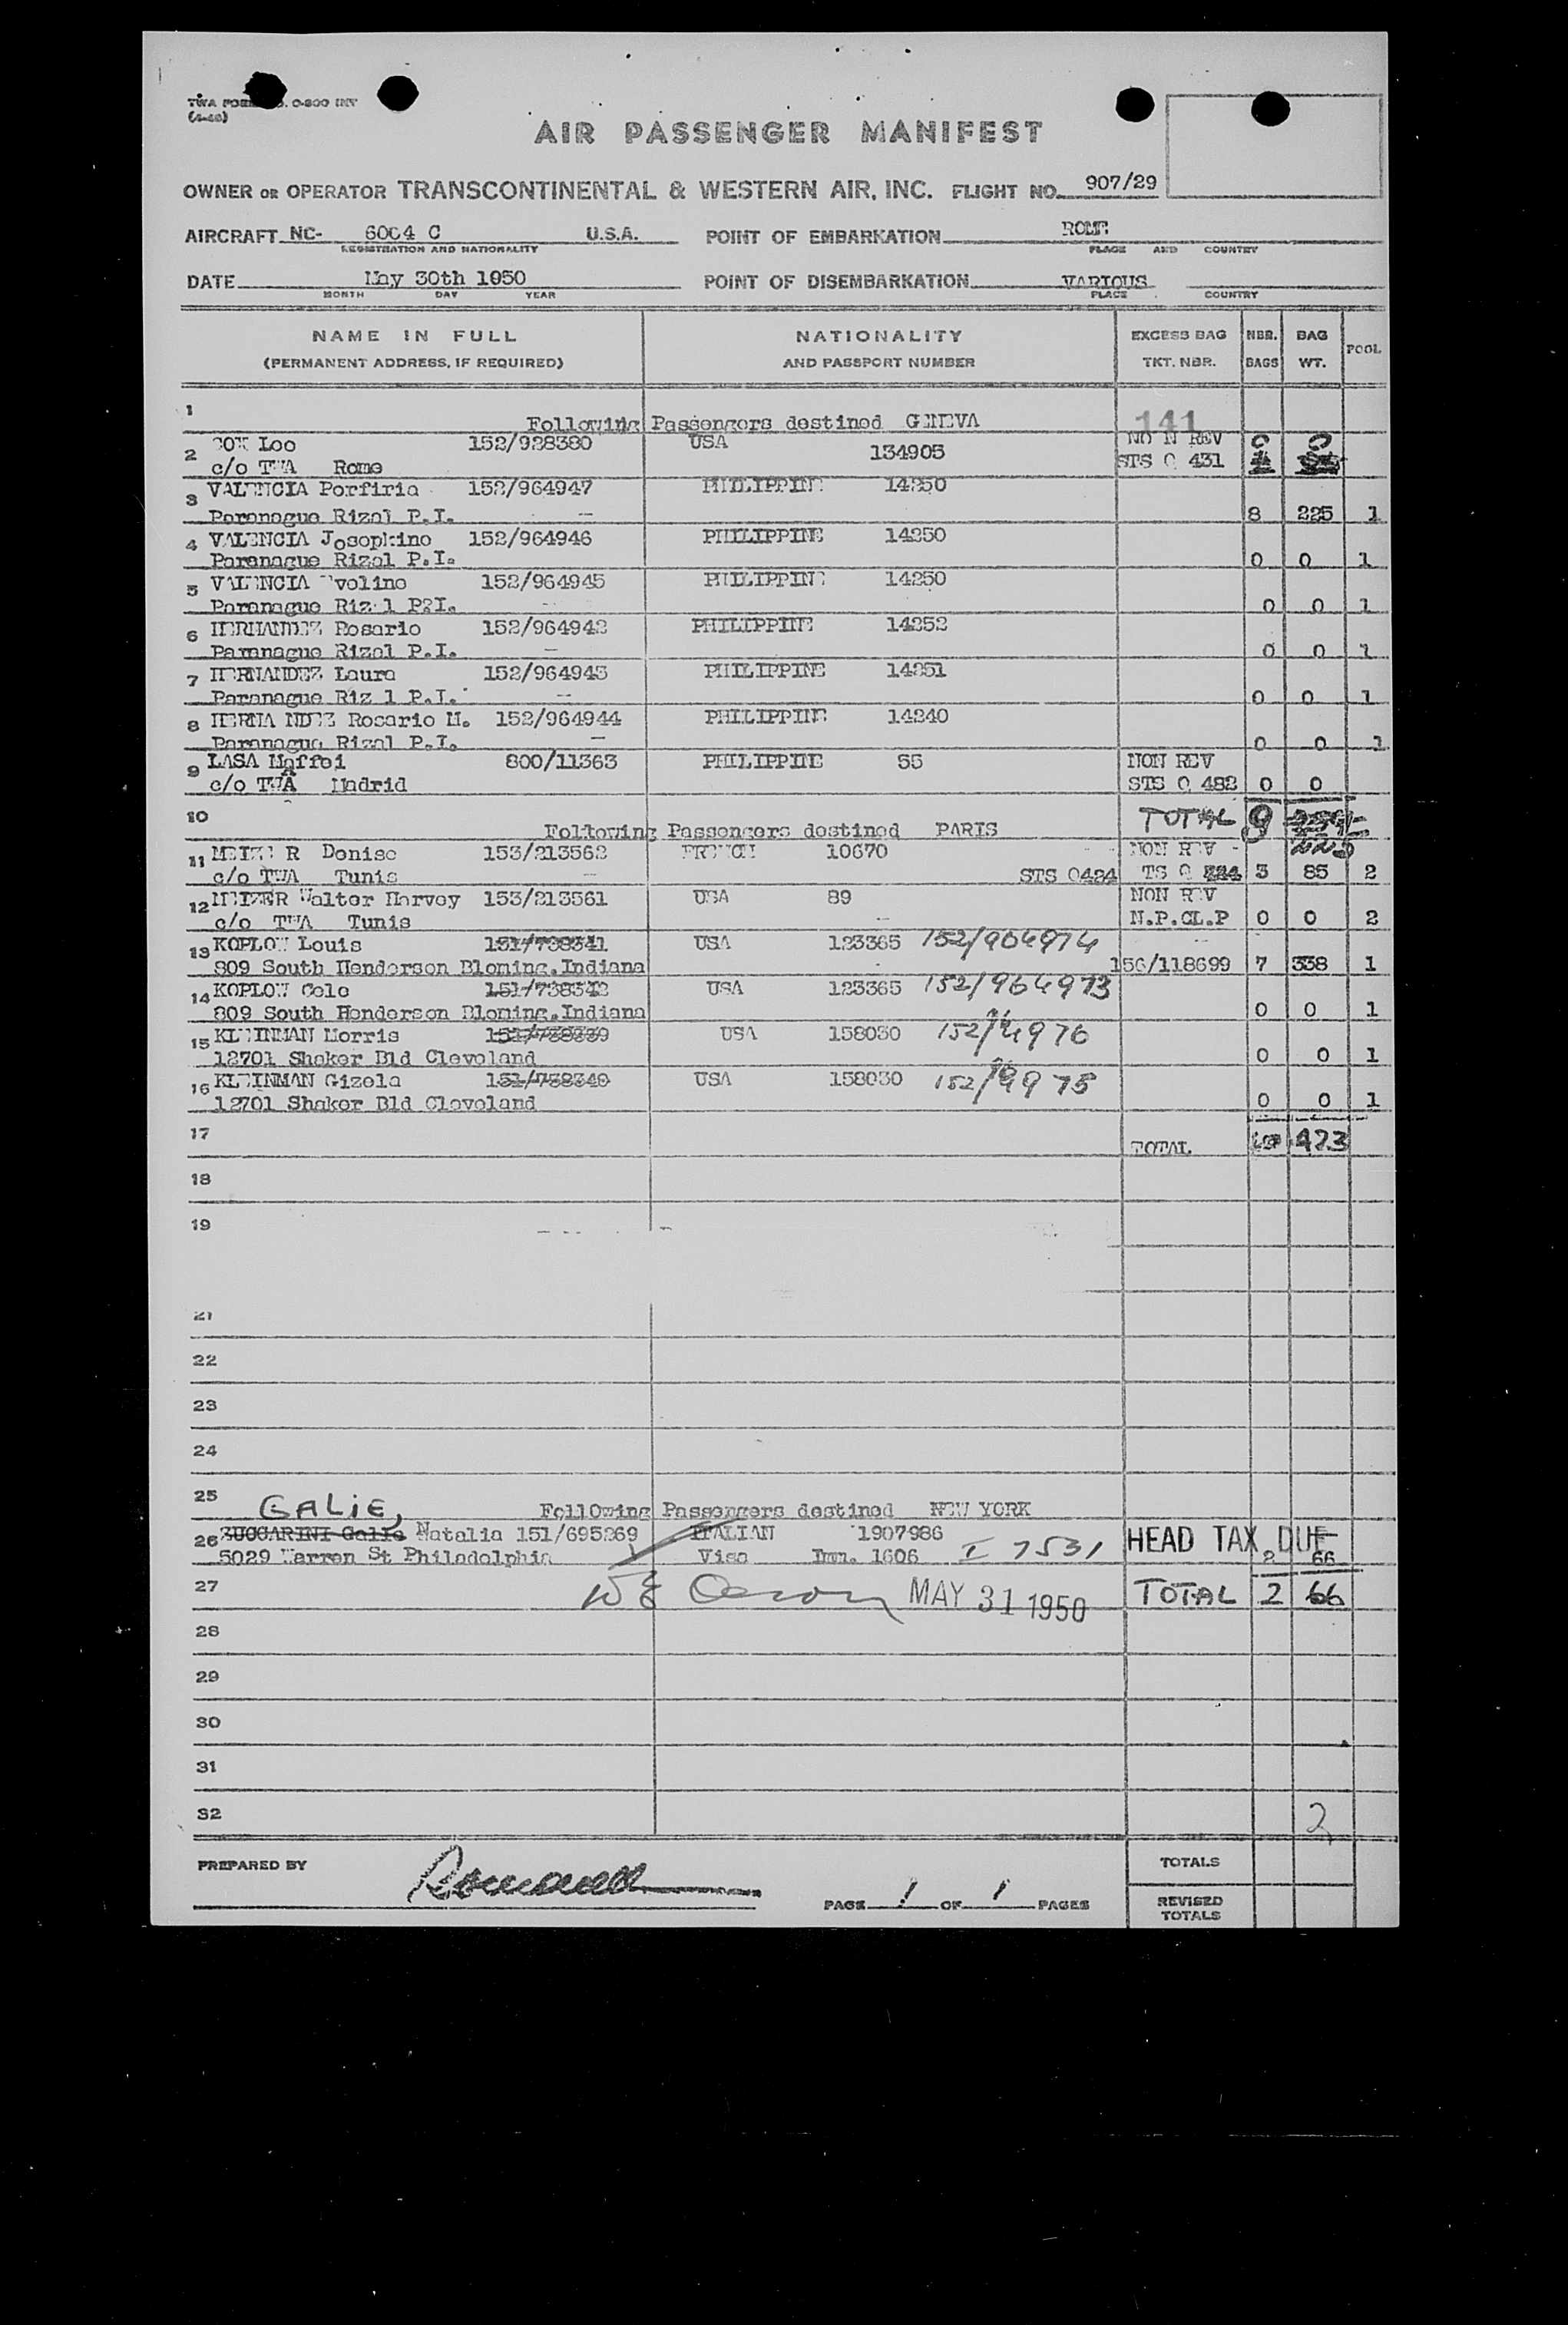 TWA FORM NO. O-800 INT
AIR PASSENGER MANIFEST
OWNER OR OPERATOR TRANSCONTINENTAL & WESTERN AIR, INC. FLIGHT NO. 907/29
AIRCRAFT NC- 6004 C U.S.A. POINT OF EMBARKATION ROME
REGISTRATION AND NATIONALITY PLACE AND COUNTRY
DATE May 30th 1950 POINT OF DISEMBARKATION VARIOUS
MONTH DAY YEAR PLACE COUNTRY
NAME IN FULL NATIONALITY EXCESS BAG NBR. BAG POOL
(PERMANENT ADDRESS, IF REQUIRED) AND PASSPORT NUMBER TKT. NBR. BAGS WT.
1 Following Passengers destined GENEVA 141
2 Leo 152/928380 USA 134905 NO N REV 0 0
c/o TWA Rome STS O 431
3 VALENCIA Porfiria 152/964947 PHILIPPINE 14250
Paranague Rizal P.I. 8 225 1
4 VALENCIA Josephine 152/964946 PHILIPPINE 14250
Paranague Rizal P.I. 0 0 1
5 VALENCIA Eveline 152/964945 PHILIPPINE 14250
Paranague Riz l P?I. 0 0 1
6 HERNANDEZ Rosario 152/964942 PHILIPPINE 14252
Paranague Rizal P.I. 0 0 1
7 HERNANDEZ Laura 152/964943 PHILIPPINE 14251
Paranague Riz l P.I. 0 0 1
8 HERNA NDEZ Rosario M. 152/964944 PHILIPPINE 14240
Paranague Rizal P.I. 0 0 1
9 LASA Maffei 800/11363 PHILIPPINE 55 NON REV
c/o TWA Madrid STS O 482 0 0
10 TOTAL 9
Following Passengers destined PARIS 225
11 MEIZER Denise 153/213562 FRENCH 10670 NON REV
c/o TWA Tunis STS O424 TS O 3 85 2
12 MEIZER Walter Harvey 153/213561 USA 89 NON REV
c/o TWA Tunis N.P.CL.P 0 0 2
13 KOPLOW Louis 151/738341 USA 123365 152/964974
809 South Henderson Bloming.Indiana 156/118699 7 338 1
14 KOPLOW Cele 151/738342 USA 123365 152/964973
809 South Henderson Bloming.Indiana 0 0 1
15 KLEINMAN Morris 151/738339 USA 158030 152/ 4976
12701 Shaker Bld Cleveland 0 0 1
16 KLEINMAN Gizela 151/738340 USA 158030 152/
12701 Shaker Bld Cleveland 0 0 1
17 TOTAL 423
18
19
21
22
23
24
25 GALIE, Following Passengers destined NEW YORK
26 ZUCCARINI Galie Natalia 151/695269 ITALIAN 1907986 HEAD TAX DUE
5029 Warren St Philadelphia Visa Imm. 1606 I 7531 2 66
27 MAY 31 1950 TOTAL 2 66
28
29
30
31
32 2
PREPARED BY TOTALS
PAGE 1 OF 1 PAGES REVISED TOTALS